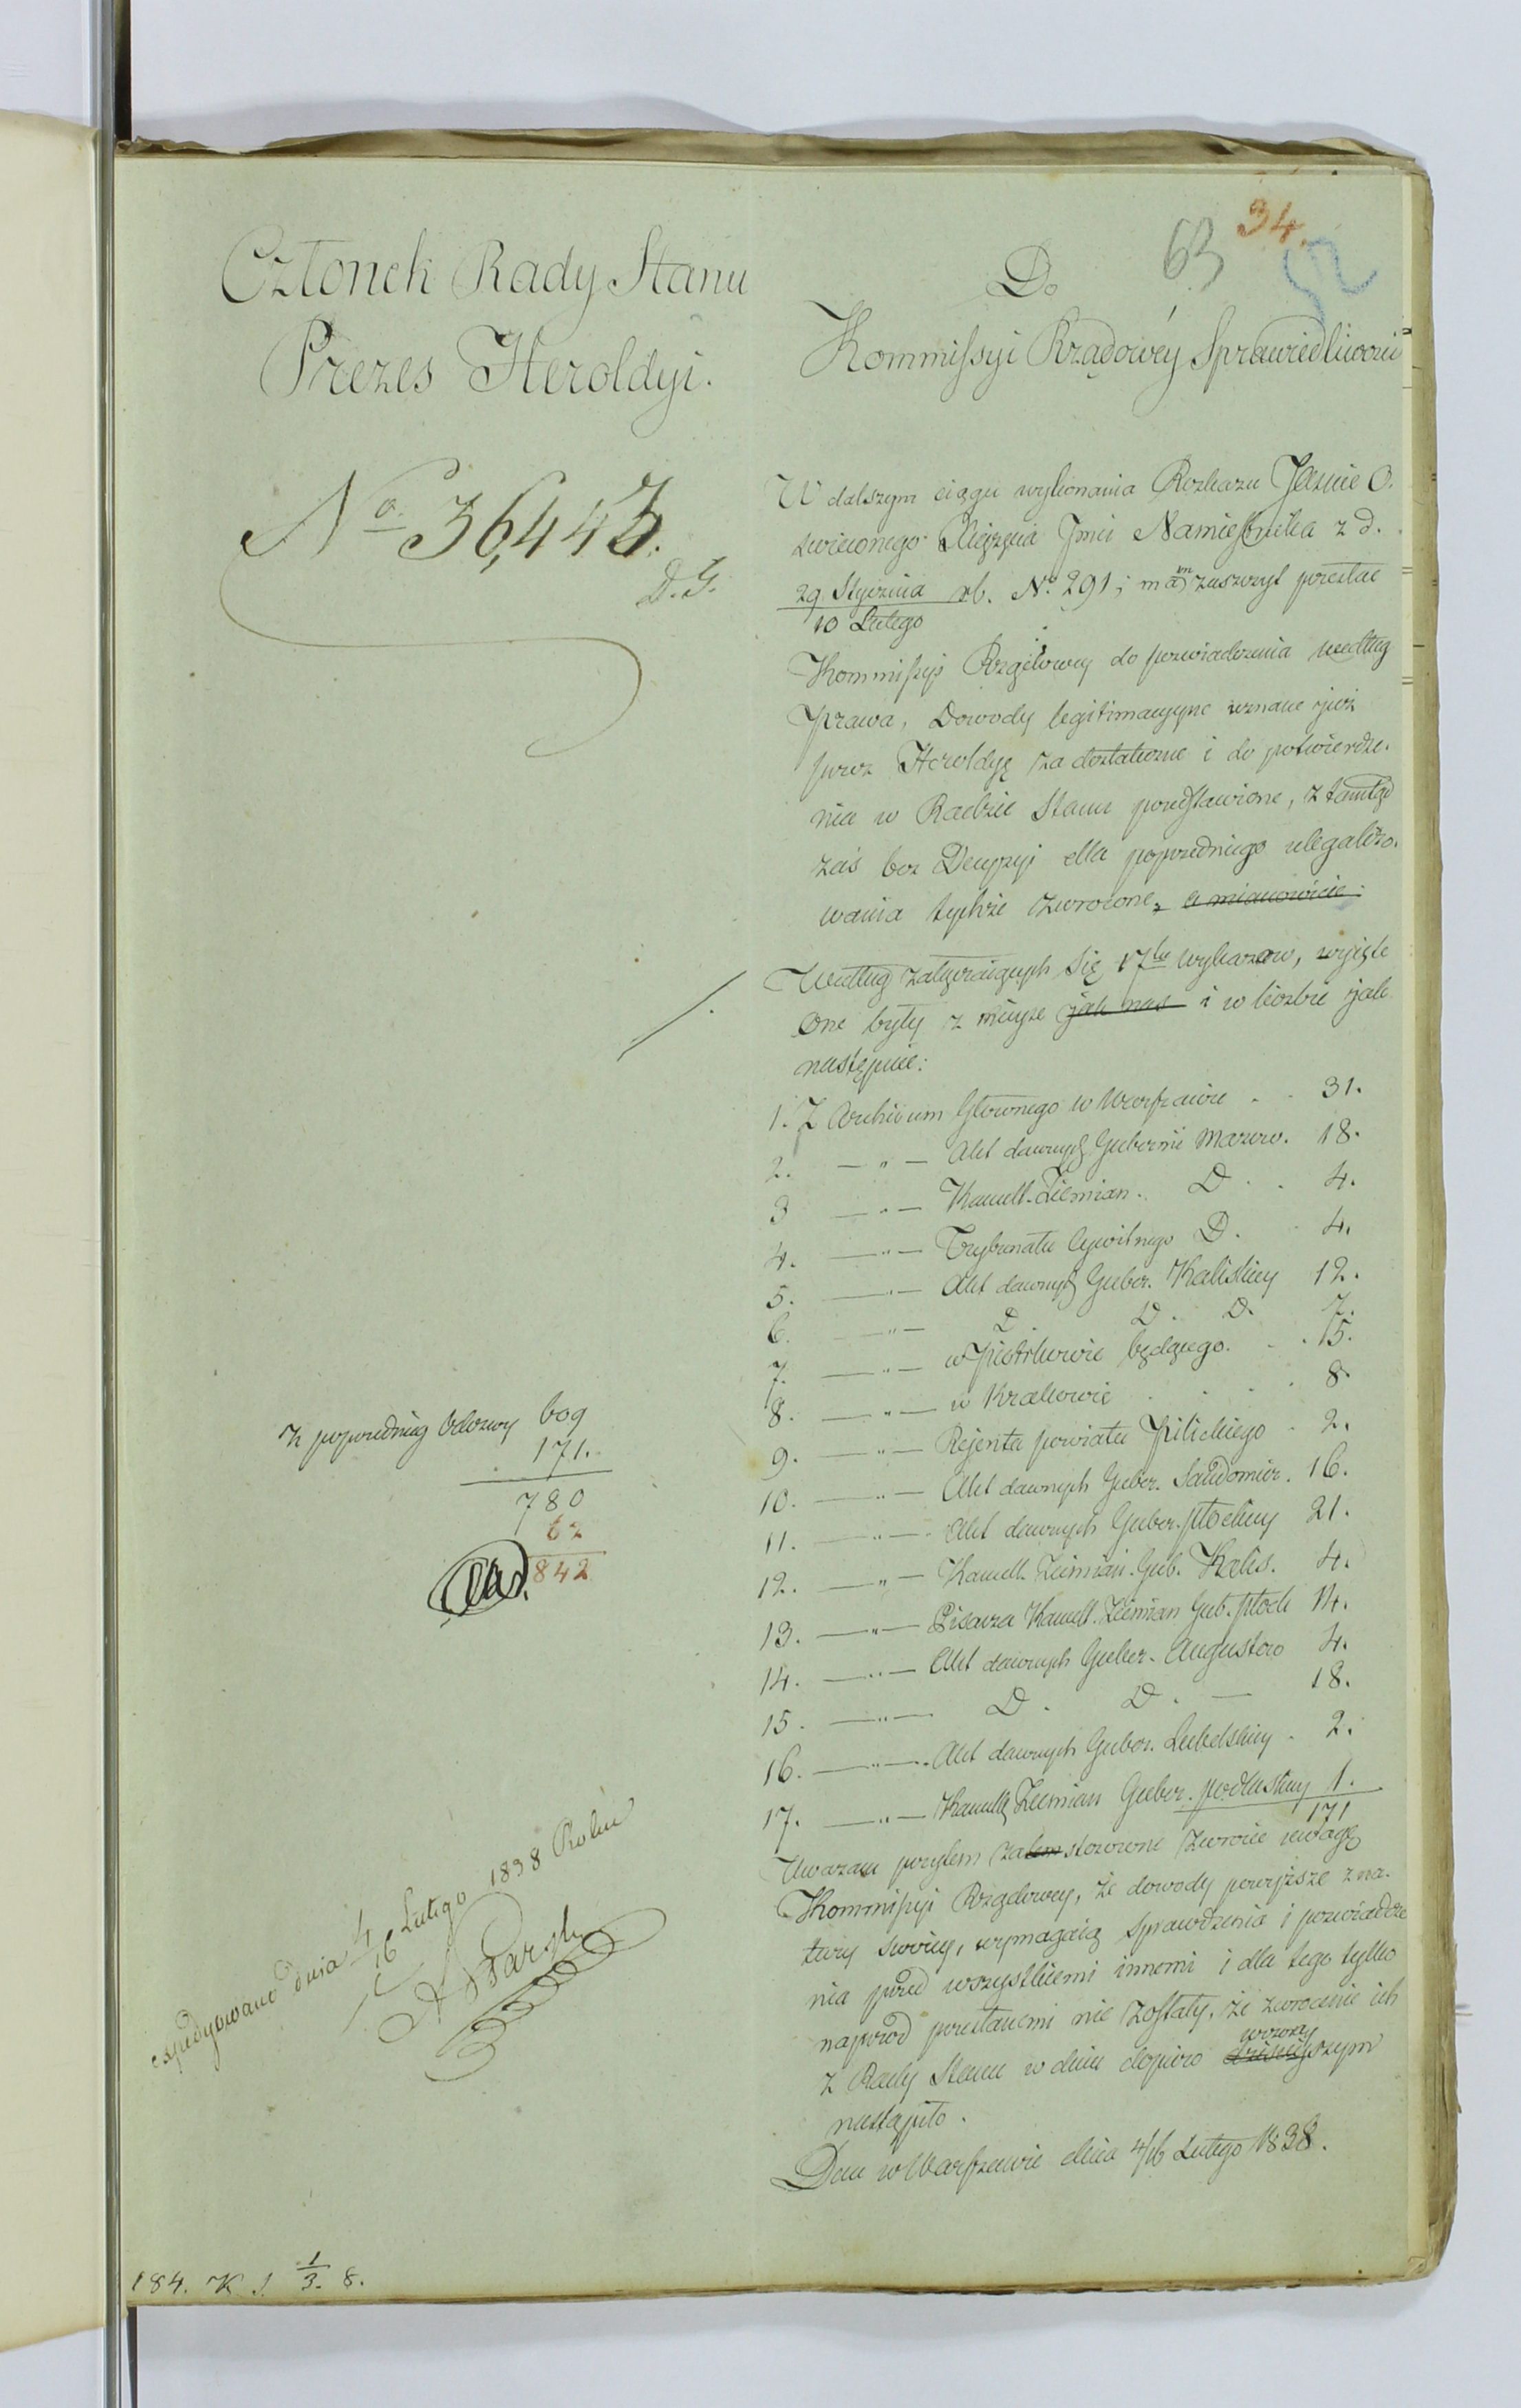 34.
63
52
Członek Rady Stanu
Prezes Heroldyi.
No 36,443.
D. G.
Do
Kommissyi Rządowéy Sprawiedliwości
W dalszym ciągu wykonania Rozkazu Jaśnie O.
swieconego Xięzęcia Jmci Namiestnika z d.
29 Stycznia rb. No 291; mam zaszczyt przesłać
10 Lutego
Kommissyi Rządowey do poswiadczenia według
Prawa, Dowody legitimacyyne uznane już
przez Heroldyę za dostateczne i do potwierdze-
nia w Radzie Stanu przedstawione, z tamtąd
zaś bez Decyzyi dla poprzedniego ulegalizo-
wania tychże zwrócone, a mianowicie:
Według załączaiących się 17tu wykazow, wyięte
one były z mieysc jak nas i w liczbie jak
następuie:
1. Z Archivum Głownego w Warszawie . . 31.
2. — " — Akt dawnych Gubernii Mazow. 18.
3 — " — Kancell. Ziemian. D . . 4.
4. — " — Trybunału Cywilnego D. . 4.
5. — " — Akt dawnych Guber. Kaliskiey 12.
6. — " — D. D. D. 7.
7. — " — w Piotrkowie będącego . . 15.
8. — " — w Krakowie . . . . 8.
9. — " — Rejenta powiatu Pilickiego . 2.
10. — " — Akt dawnych Guber. Sandomier. 16.
11. — " — Akt dawnych Guber. Płockiey 21.
12. — " — Kancell. Ziemian. Gub. Kalis. 4.
13. — " — Pisarza Kancell. Ziemian Gub. Płock 14.
14. — " — Akt dawnych Guber. Augustow 4.
15. — " — D. D. — 18.
16. — " — Akt dawnych Guber. Lubelskiey . 2.
17. — " — Kancell. Ziemian Guber. podlaskiey 1.
171
Uważam przytem za stosowne zwrócić uwagę
Kommissyi Rządowey, że dowody powyższe z na-
tury swoiey, wymagaią sprawdzenia i poswiadcze
nia przed wszystkiemi innemi i dla tego tylko
naprzod przesłanemi nie zostały, że zwrocenie ich
z Rady Stanu w dniu dopiero wczoray dzisieyszym
nastąpiło.
Dan w Warszawie dnia 4/16 Lutego 1838.
Z poprzedniey Odezwy 609
171.
780
62
842
expedyowano dnia 4/16 Lutego 1838 Roku
184. K. S. 1/3. 8.